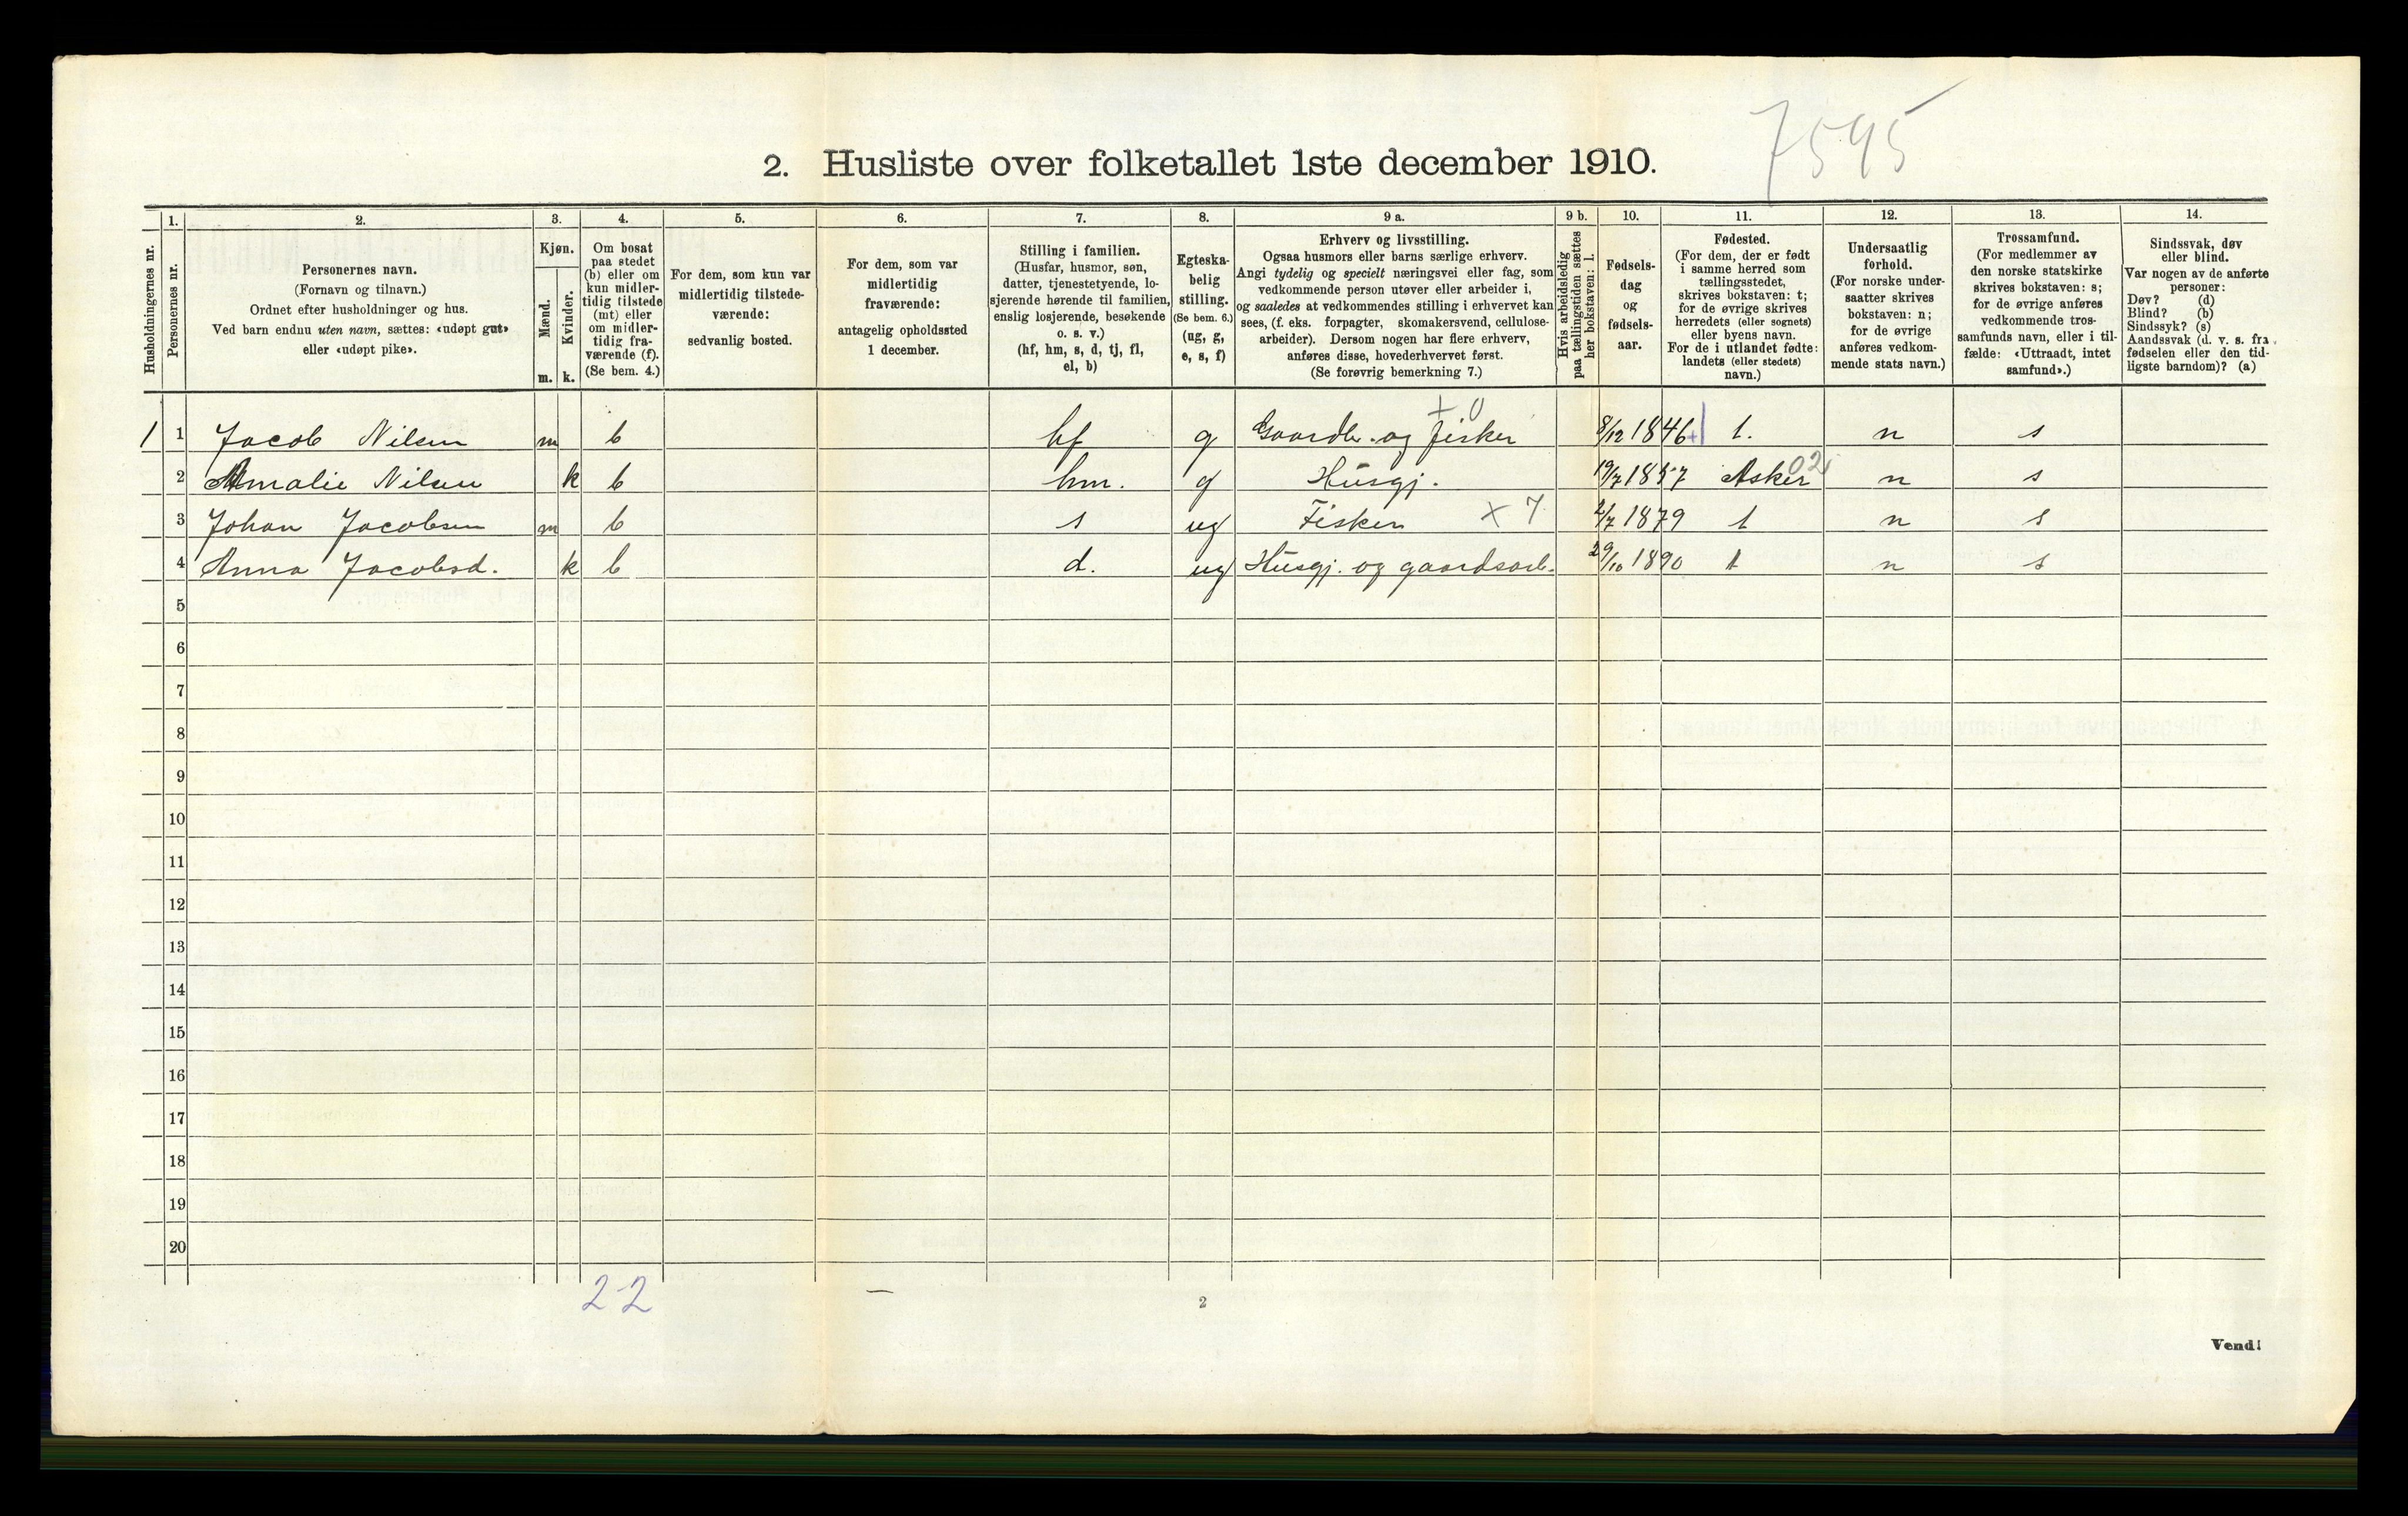 7595
2. Husliste over folketallet 1ste december 1910.
Husholdningernes nr.
1.
Personernes nr.
2.
Personernes navn.
(Fornavn og tilnavn.)
Ordnet efter husholdninger og hus.
Ved barn endnu uten navn, sættes: «udøpt gut»
eller «udøpt pike».
3.
Kjøn.
Mænd.
Kvinder.
m. k.
4.
Om bosat
paa stedet
(b) eller om
kun midler-
tidig tilstede
(mt) eller
om midler-
tidig fra-
værende (f).
(Se bem. 4.)
5.
For dem, som kun var
midlertidig tilstede-
værende:
sedvanlig bosted.
6.
For dem, som var
midlertidig
fraværende:
antagelig opholdssted
1 december.
7.
Stilling i familien.
(Husfar, husmor, søn,
datter, tjenestetyende, lo-
sjerende hørende til familien,
enslig losjerende, besøkende
o. s. v.)
(hf, hm, s, d, tj, fl,
el, b)
8.
Egteska-
belig
stilling.
(Se bem. 6.)
(ug, g,
e, s, f)
9 a.
Erhverv og livsstilling.
Ogsaa husmors eller barns særlige erhverv.
Angi tydelig og specielt næringsvei eller fag, som
vedkommende person utøver eller arbeider i,
og saaledes at vedkommendes stilling i erhvervet kan
sees, (f. eks. forpagter, skomakersvend, cellulose-
arbeider). Dersom nogen har flere erhverv,
anføres disse, hovederhvervet først.
(Se forøvrig bemerkning 7.)
9 b.
Hvis arbeidsledig
paa tællingstiden sættes
her bokstaven: l.
10.
Fødsels-
dag
og
fødsels-
aar.
11.
Fødested.
(For dem, der er født
i samme herred som
tællingsstedet,
skrives bokstaven: t;
for de øvrige skrives
herredets (eller sognets)
eller byens navn.
For de i utlandet fødte:
landets (eller stedets)
navn.)
12.
Undersaatlig
forhold.
(For norske under-
saatter skrives
bokstaven: n;
for de øvrige
anføres vedkom-
mende stats navn.)
13.
Trossamfund.
(For medlemmer av
den norske statskirke
skrives bokstaven: s;
for de øvrige anføres
vedkommende tros-
samfunds navn, eller i til-
fælde: «Uttraadt, intet
samfund».)
14.
Sindssvak, døv
eller blind.
Var nogen av de anførte
personer:
Døv? (d)
Blind? (b)
Sindssyk? (s)
Aandssvak (d. v. s. fra
fødselen eller den tid-
ligste barndom)? (a)
+ 0
1 1 Jacob Nilsen m b hf g Gaardb. og fisker 8/12 1846 + t. n s
2 Amalie Nilsen k b hm. g Husgj. 19/7 1857 Asker 02 n s
3 Johan Jacobsen m b s ug Fisker x 7 2/7 1879 t n s
4 Anna Jacobsd. k b d. ug Husgj. og gaardsarb. 29/10 1890 t n s
5
6
7
8
9
10
11
12
13
14
15
16
17
18
19
20
2-2 —
2
Vend!